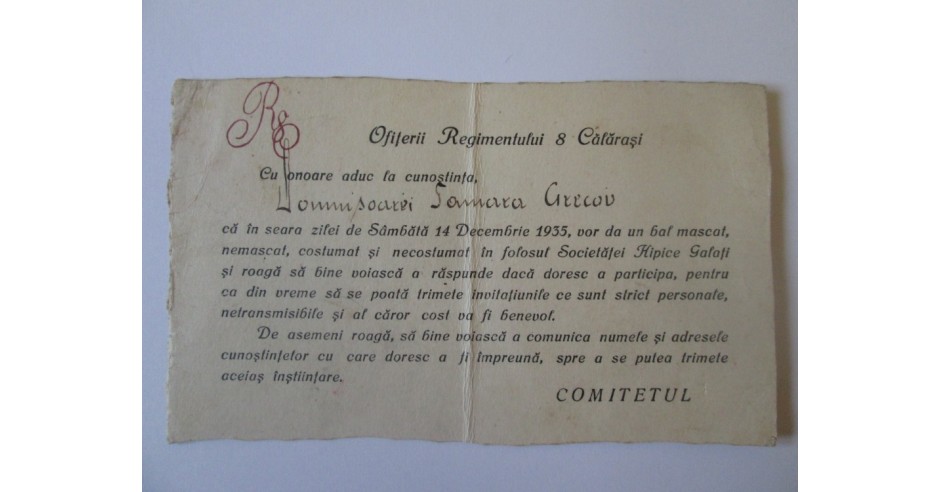 R8
Ofițerii Regimentului 8 Călărași
Cu onoare aduc la cunoștința,
Domnișoarei Tamara Grecov
că în seara zilei de Sâmbătă 14 Decembrie 1935, vor da un bal mascat,
nemascat, costumat și necostumat în folosul Societăței Hipice Galați
și roagă să bine voiască a răspunde dacă doresc a participa, pentru
ca din vreme să se poată trimete invitațiunile ce sunt strict personale,
netransmisibile și al căror cost va fi benevol.
De asemeni roagă, să bine voiască a comunica numele și adresele
cunoștințelor cu care doresc a fi împreună, spre a se putea trimete
aceiaș înștiințare.
COMITETUL